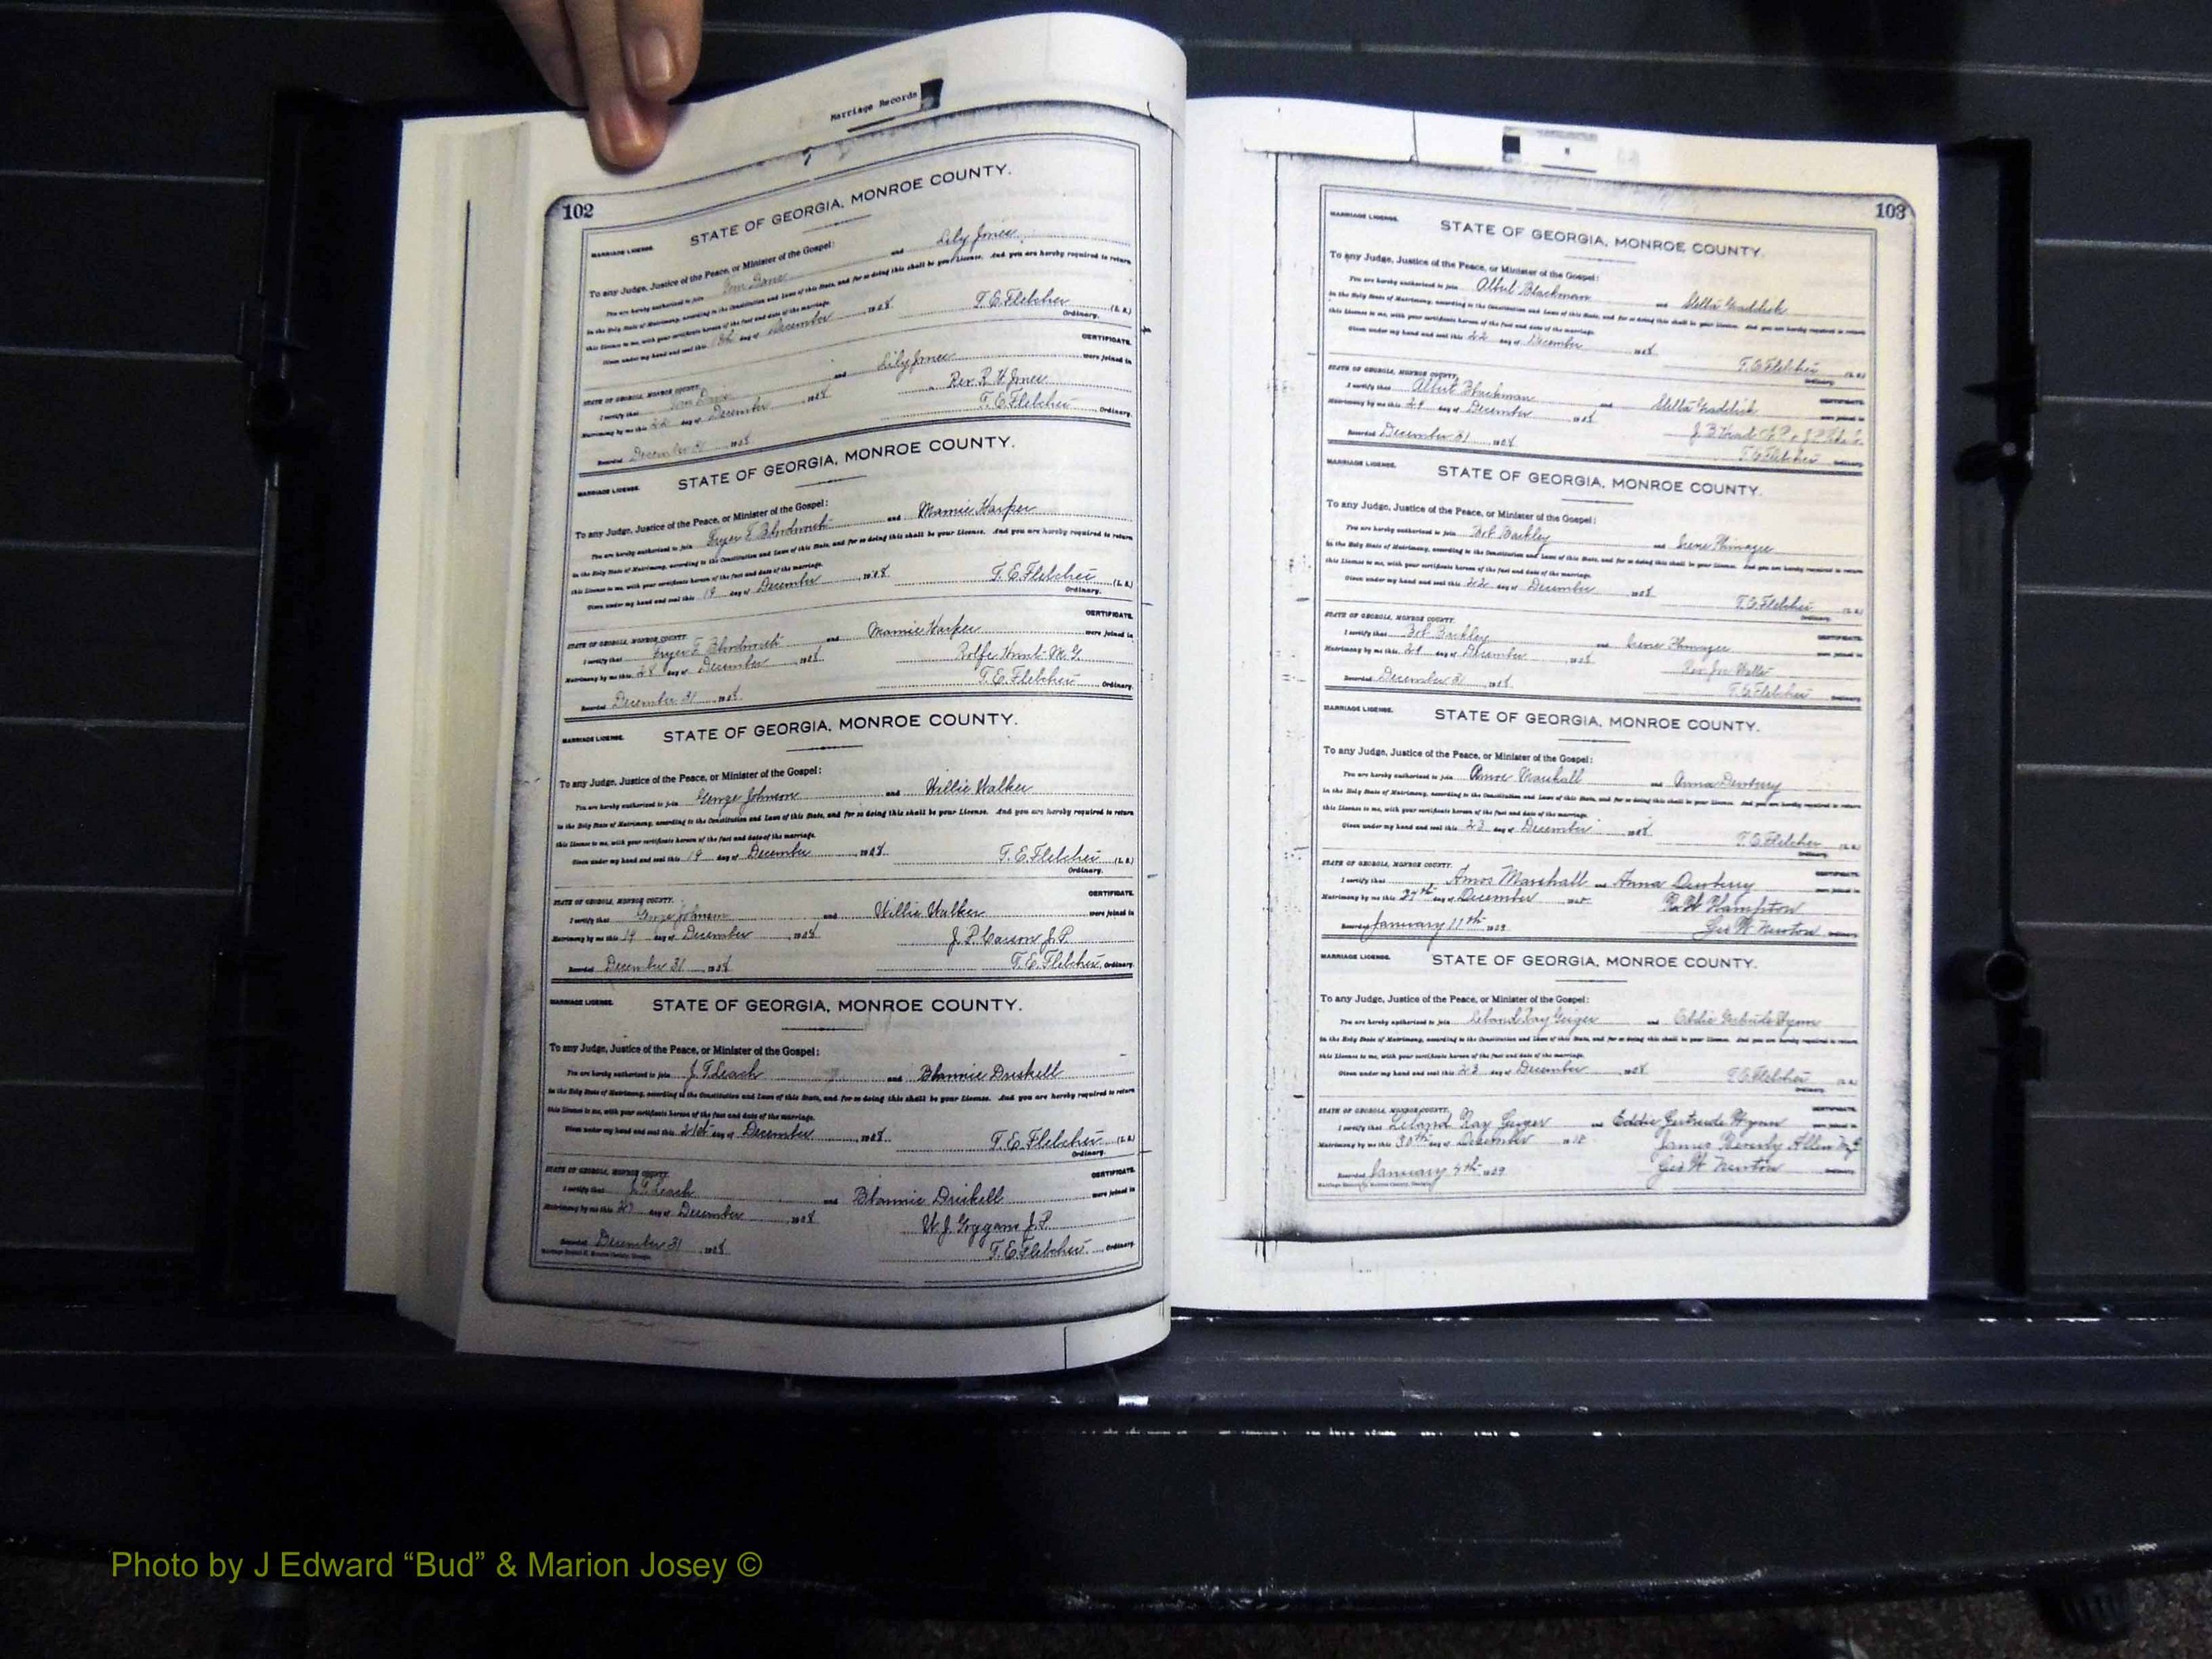 Marriage Records
102
STATE OF GEORGIA, MONROE COUNTY.
MARRIAGE LICENSE.
To any Judge, Justice of the Peace, or Minister of the Gospel:
You are hereby authorized to join Tom and Lily Jones
in the Holy State of Matrimony, according to the Constitution and Laws of this State, and for so doing this shall be your License. And you are hereby required to return
this License to me, with your certificate hereon of the fact and date of the marriage.
Given under my hand and seal this day of December 1908
T. E. Fletcher (L. S.)
Ordinary.
CERTIFICATE.
STATE OF GEORGIA, MONROE COUNTY.
I certify that Tom Davis and Lily Jones were joined in
Matrimony by me this 22 day of December 1908 Rev. R. H. Jones
Recorded December 31 1908 T. E. Fletcher Ordinary.
MARRIAGE LICENSE.
STATE OF GEORGIA, MONROE COUNTY.
To any Judge, Justice of the Peace, or Minister of the Gospel:
You are hereby authorized to join and Mamie Harper
in the Holy State of Matrimony, according to the Constitution and Laws of this State, and for so doing this shall be your License. And you are hereby required to return
this License to me, with your certificate hereon of the fact and date of the marriage.
Given under my hand and seal this 19 day of December 1908
T. E. Fletcher (L. S.)
Ordinary.
CERTIFICATE.
STATE OF GEORGIA, MONROE COUNTY.
I certify that and Mamie Harper were joined in
Matrimony by me this 28 day of December 1908 Rolfe Hunt M. G.
Recorded December 31 1908 T. E. Fletcher Ordinary.
MARRIAGE LICENSE.
STATE OF GEORGIA, MONROE COUNTY.
To any Judge, Justice of the Peace, or Minister of the Gospel:
You are hereby authorized to join George Johnson and Willie Walker
in the Holy State of Matrimony, according to the Constitution and Laws of this State, and for so doing this shall be your License. And you are hereby required to return
this License to me, with your certificate hereon of the fact and date of the marriage.
Given under my hand and seal this 19 day of December 1908
T. E. Fletcher (L. S.)
Ordinary.
CERTIFICATE.
STATE OF GEORGIA, MONROE COUNTY.
I certify that George Johnson and Willie Walker were joined in
Matrimony by me this 19 day of December 1908 J. P. Carson J. P.
Recorded December 31 1908 T. E. Fletcher Ordinary.
MARRIAGE LICENSE.
STATE OF GEORGIA, MONROE COUNTY.
To any Judge, Justice of the Peace, or Minister of the Gospel:
You are hereby authorized to join J. T. Leach and Driskell
in the Holy State of Matrimony, according to the Constitution and Laws of this State, and for so doing this shall be your License. And you are hereby required to return
this License to me, with your certificate hereon of the fact and date of the marriage.
Given under my hand and seal this 21st day of December 1908
T. E. Fletcher (L. S.)
Ordinary.
CERTIFICATE.
STATE OF GEORGIA, MONROE COUNTY.
I certify that J. T. Leach and Driskell were joined in
Matrimony by me this 27 day of December 1908 W. J. Goggans J. P.
Recorded December 31 1908 T. E. Fletcher Ordinary.
103
MARRIAGE LICENSE.
STATE OF GEORGIA, MONROE COUNTY.
To any Judge, Justice of the Peace, or Minister of the Gospel:
You are hereby authorized to join Albert Blackman and Stella Gaddick
in the Holy State of Matrimony, according to the Constitution and Laws of this State, and for so doing this shall be your License. And you are hereby required to return
this License to me, with your certificate hereon of the fact and date of the marriage.
Given under my hand and seal this 22 day of December 1908
T. E. Fletcher (L. S.)
Ordinary.
STATE OF GEORGIA, MONROE COUNTY.
CERTIFICATE.
I certify that Albert Blackman and Stella Gaddick were joined in
Matrimony by me this 24 day of December 1908
Recorded December 31 1908 T. E. Fletcher Ordinary.
MARRIAGE LICENSE.
STATE OF GEORGIA, MONROE COUNTY.
To any Judge, Justice of the Peace, or Minister of the Gospel:
You are hereby authorized to join Bob Barkley and Irene
in the Holy State of Matrimony, according to the Constitution and Laws of this State, and for so doing this shall be your License. And you are hereby required to return
this License to me, with your certificate hereon of the fact and date of the marriage.
Given under my hand and seal this 22 day of December 1908
T. E. Fletcher (L. S.)
Ordinary.
STATE OF GEORGIA, MONROE COUNTY.
CERTIFICATE.
I certify that Bob Barkley and Irene were joined in
Matrimony by me this 24 day of December 1908 Rev.
Recorded December 31 1908 T. E. Fletcher Ordinary.
MARRIAGE LICENSE.
STATE OF GEORGIA, MONROE COUNTY.
To any Judge, Justice of the Peace, or Minister of the Gospel:
You are hereby authorized to join Amos Marshall and Anna Dewberry
in the Holy State of Matrimony, according to the Constitution and Laws of this State, and for so doing this shall be your License. And you are hereby required to return
this License to me, with your certificate hereon of the fact and date of the marriage.
Given under my hand and seal this 23 day of December 1908
T. E. Fletcher (L. S.)
Ordinary.
STATE OF GEORGIA, MONROE COUNTY.
CERTIFICATE.
I certify that Amos Marshall and Anna Dewberry were joined in
Matrimony by me this 27th day of December 1908 R. W. Hampton
Recorded January 11th 1909 Geo W Newton Ordinary.
MARRIAGE LICENSE.
STATE OF GEORGIA, MONROE COUNTY.
To any Judge, Justice of the Peace, or Minister of the Gospel:
You are hereby authorized to join Leland Ray Geiger and Eddie Gertrude Wynn
in the Holy State of Matrimony, according to the Constitution and Laws of this State, and for so doing this shall be your License. And you are hereby required to return
this License to me, with your certificate hereon of the fact and date of the marriage.
Given under my hand and seal this 23 day of December 1908
T. E. Fletcher (L. S.)
Ordinary.
STATE OF GEORGIA, MONROE COUNTY.
CERTIFICATE.
I certify that Leland Ray Geiger and Eddie Gertrude Wynn were joined in
Matrimony by me this 30th day of December James Beverly Allen M G
Recorded January 4th 1909 Geo W Newton Ordinary.
Photo by J Edward “Bud” & Marion Josey ©